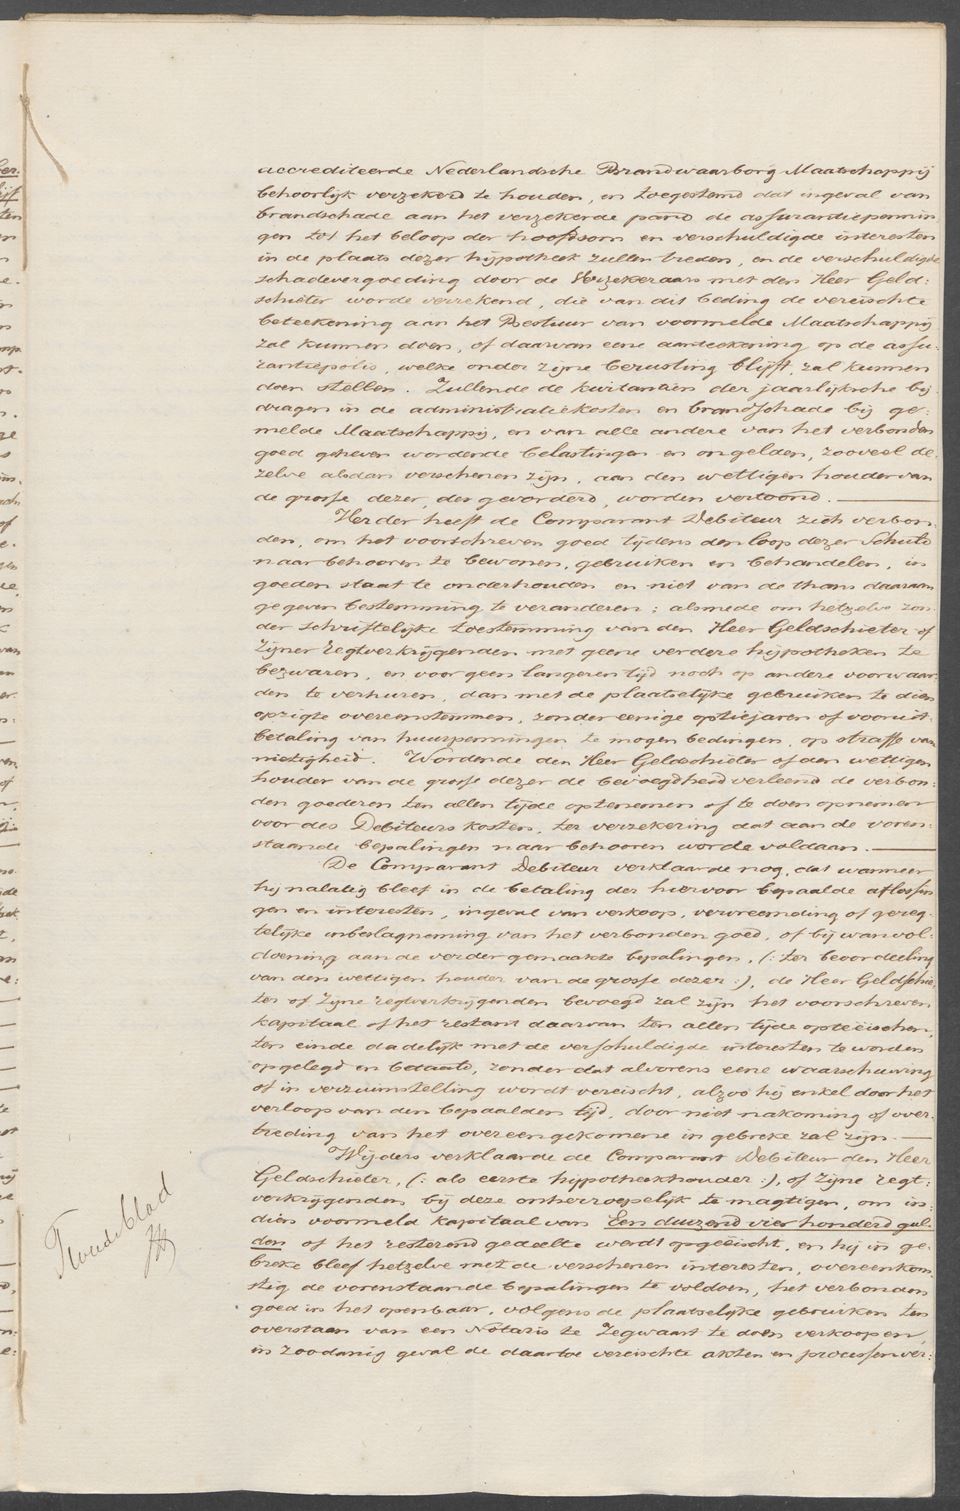 accrediteerde Nederlandsche Brandwaarborg Maatschappij
behoorlijk verzekerd te houden, en toegestemd dat ingeval van
brandschade aan het verzekerde pand de assurantiepennin
gen tot het beloop der hoofdsom en verschuldigde interesten
in de plaats dezer hijpotheek zullen treden, en de verschuldigde
schadevergoeding door de Verzekeraars met den Heer Geld=
schieter worde verrekend, die van dit beding de vereischte
beteekening aan het Bestuur van voormelde Maatschappij
zal kunnen doen, of daarvan eene aanteekening op de assu=
rantiepolis, welke onder zijne berusting blijft, zal kunnen
doen stellen. Zullende de kwitantien der jaarlijksche bij=
dragen in de administratiekosten en brandschade bij ge=
melde Maatschappij, en van alle andere van het verbonden
goed geheven wordende belastingen en ongelden, zooveel de=
zelve alsdan verschenen zijn, aan den wettigen houder van
de grosse dezer, des gevorderd, worden vertoond.
Verder heeft de Comparant Debiteur zich verbon=
den, om het voorschreven goed tijdens den loop dezer Schuld
naar behooren te bewonen, gebruiken en behandelen, in
goeden staat te onderhouden en niet van de thans daaraan
gegeven bestemming te veranderen; alsmede om hetzelve zon=
der schriftelijke toestemming van den Heer Geldschieter of
zijner regtverkrijgenden met geene verdere hijpotheken te
bezwaren, en voor geen langeren tijd noch op andere voorwaar=
den te verhuren, dan met de plaatselijke gebruiken te dien
opzigte overeenstemmen, zonder eenige optiejaren of vooruit=
betaling van huurpenningen te mogen bedingen, op straffe van
nietigheid. Wordende den Heer Geldschieter of den wettigen
houder van de grosse dezer de bevoegdheid verleend de verbon=
den goederen ten allen tijde optenemen of te doen opnemen
voor des Debiteurs kosten, ter verzekering dat aan de voren=
staande bepalingen naar behooren worde voldaan.
De Comparant Debiteur verklaarde nog, dat wanneer
hij nalatig bleef in de betaling der hiervoor bepaalde aflossin
gen en interesten, ingeval van verkoop, vervreemding of gereg=
telijke inbeslagneming van het verbonden goed, of bij wanvol=
doening aan de verder gemaakte bepalingen, (: ter beoordeeling
van den wettigen houder van de grosse dezer :), de Heer Geldschie=
ter of zijne regtverkrijgenden bevoegd zal zijn het voorschreven
kapitaal of het restant daarvan ten allen tijde opteëischen,
ten einde dadelijk met de verschuldigde interesten te worden
opgelegd en betaald, zonder dat alvorens eene waarschuwing
of in verzuimstelling wordt vereischt, alzoo hij enkel door het
verloop van den bepaalden tijd, door niet nakoming of over=
treding van het overeengekomene in gebreke zal zijn.
Wijders verklaarde de Comparant Debiteur den Heer
Geldschieter, (: als eerste hypotheekhouder :), of zijne regt=
verkrijgenden bij deze onherroepelijk te magtigen, om in=
dien voormeld kapitaal van Een duizend vier honderd gul=
den of het resterend gedeelte werdt opgeëischt, en hij in ge=
breke bleef hetzelve met de verschenen interesten, overeenkom=
stig de vorenstaande bepalingen te voldoen, het verbonden
goed in het openbaar, volgens de plaatselijke gebruiken ten
overstaan van een Notaris te Zegwaart te doen verkoopen,
in zoodanig geval de daartoe vereischte akten en processenver=
Tweede blad